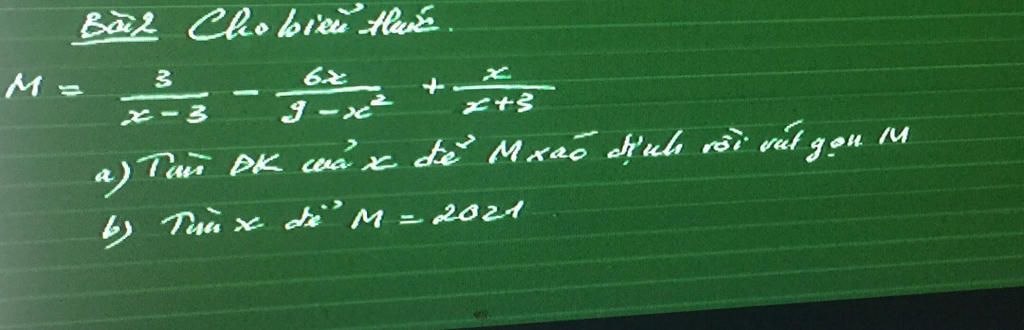 Bài 2 Cho biểu thức.
M = \frac{3}{x-3} - \frac{6x}{9-x^2} + \frac{x}{x+3}
a) Tìm ĐK của x để M xác định rồi rút gọn M
b) Tìm x để M = 2021